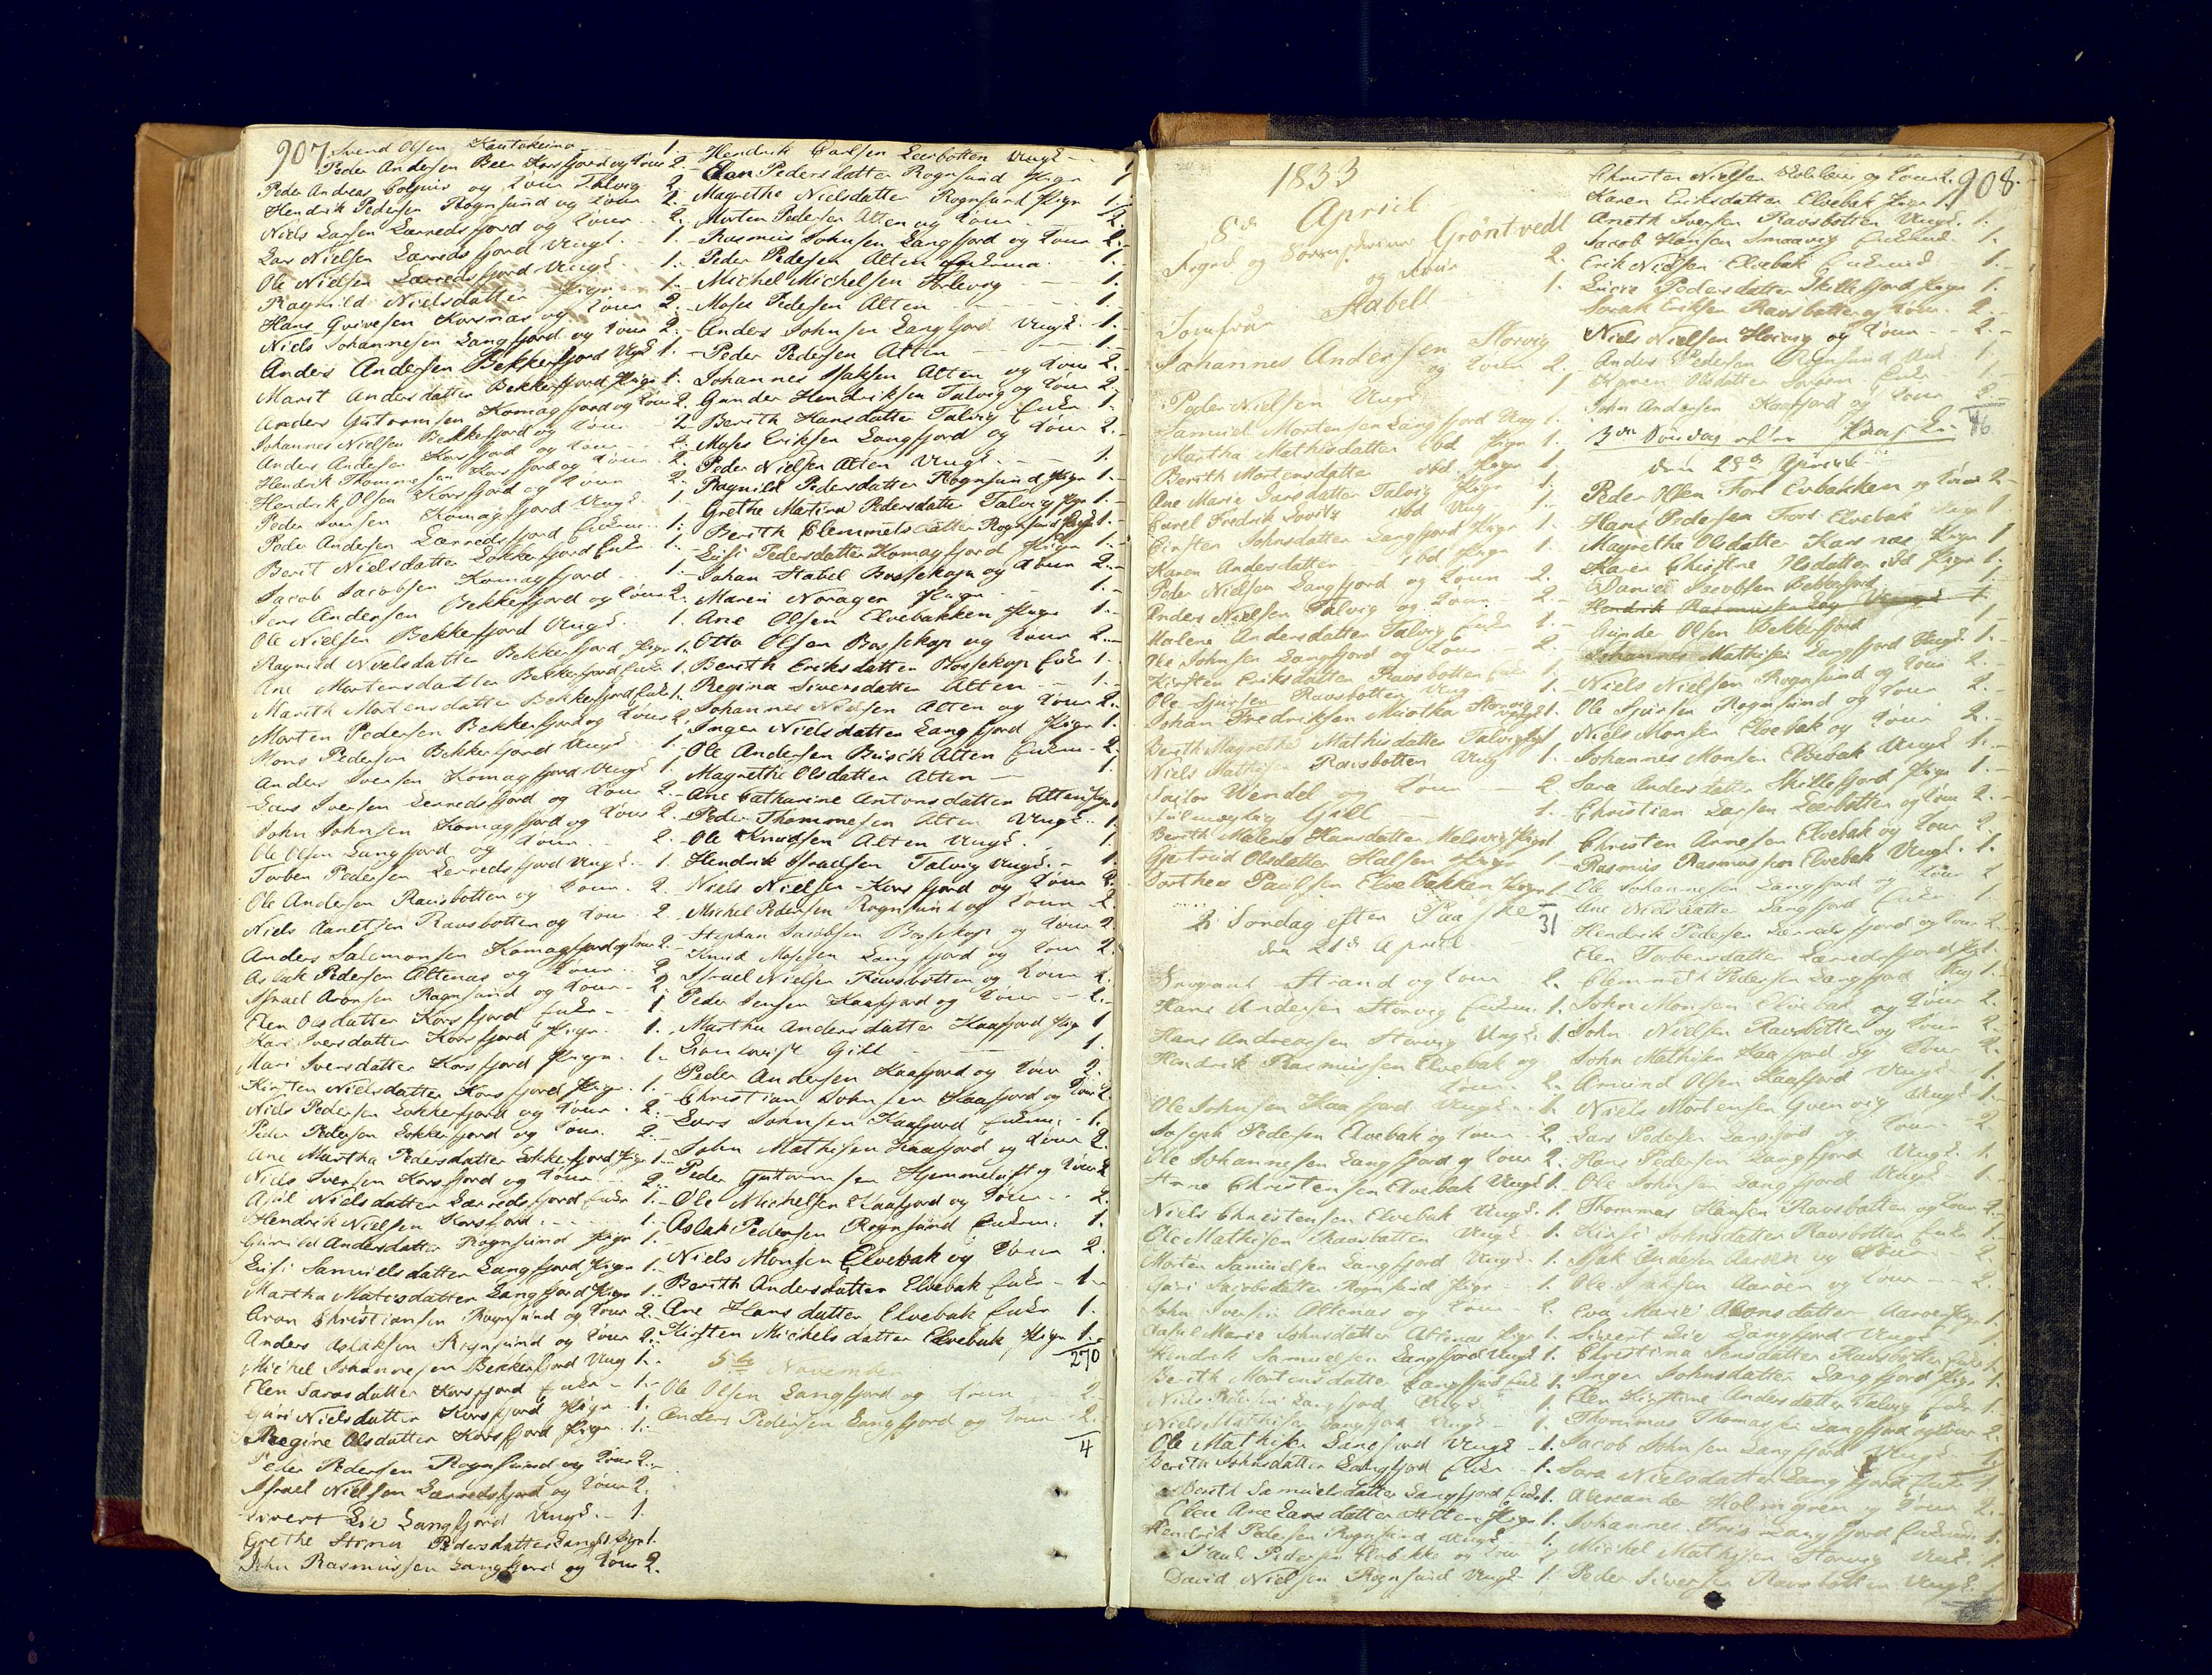 907
Svend Olsen Kautokeino 1.
Peder Andersen Beer Korsfjord og Kone 2
Peder Andreas og Kone Talvig 2
Hendrik Pedersen Rognsund og Kone 2.
Niels Larsen Lerredsfjord og Kone 2.
Lars Nielsen Lerredsfjord Ungk. 1.
Ole Nielsen Lerredsfjord Ungk. 1.
Ragnild Nielsdatter Pige 1.
Hans Korsnæs og Kone 2.
Niels Johannesen Langfjord og Kone 2.
Anders Andersen Bekkerfjord Ungk 1.
Marit Andersdatter Bekkerfjord Pige 1.
Anders Guttormsen Komagfjord og Kone 2.
Johannes Nielsen Bekkerfjord og Kone 2
Anders Andersen Korsfjord og Kone 2.
Hendrik Thommesen Korsfjord og Kone 2.
Hendrik Olsen Korsfjord og Kone 2.
Peder Iversen Komagfjord Ungk. 1
Peder Andersen Lerredsfjord Enkem. 1.
Berit Nielsdatter Lokkerfjord Enke 1.
Jacob Jacobsen Komagfjord 1.
Jens Andersen Bekkerfjord og Kone 2.
Ole Nielsen Bekkerfjord Ungk. 1.
Ragnild Nielsdatter Bekkerfjord Pige 1.
Ane Mortensdatter Bekkerfjord Enke 1.
Marith Mortensdatter Bekkerfjord Enke 1.
Morten Pedersen Bekkerfjord og Kone 2.
Mons Pedersen Bekkerfjord Ungk. 1.
Anders Iversen Komagfjord Ungk. 1.
Lars Iversen Lerredsfjord og Kone 2.
John Johnsen Komagfjord og Kone 2.
Ole Olsen Langfjord og Kone 2.
Torben Pedersen Lerredsfjord Ungk. 1.
Ole Andersen Ravsbotten og Kone 2.
Niels Ravsbotten og Kone 2
Anders Salamonsen Komagfjord og Kone 2
Aslak Pedersen Altenæs og Kone 2
Israel Aronsen Rognsund og Kone 2
Elen Olsdatter Korsfjord Enke 1
Kari Iversdatter Korsfjord Pige 1.
Mari Iversdatter Korsfjord Pige 1.
Kirsten Nielsdatter Korsfjord Pige 1.
Niels Pedersen Lokkerfjord og Kone 2.
Peder Pedersen Lokkerfjord og Kone 2.
Ane Martha Pedersdatter Lokkerfjord Pige 1.
Niels Iversen Korsfjord og Kone 2.
Nielsdatter Lerredsfjord Enke 1.
Hendrik Nielsen Korsfjord 1.
Gunild Andersdatter Rognsund Pige 1.
Lusi Samuelsdatter Langfjord Pige 1.
Martha Matisdatter Langfjord Pige 1.
Aron Christiansen Rognsund og Kone 2
Anders Aslaksen Rognsund og Kone 2.
Michel Johannesen Bekkerfjord Ung 1.
Elen Larsdatter Korsfjord Enke 1.
Guri Nielsdatter Korsfjord Pige 1.
Regine Olsdatter Korsfjord Pige 1.
Peder Pedersen Rognsund og Kone 2.
Israel Nielsen Lerredsfjord og Kone 2.
Sivert Lie Langfjord Ungk. 1.
Grethe Stina Pedersdatter Langfj Pige 1.
John Rasmussen Langfjord og Kone 2.
Hendrik Carlsen Leerbotten Ungk 1
Elen Pedersdatter Rognsund Pige 1
Magrethe Nielsdatter Rognsund Pige 1.
Morten Pedersen Alten og Kone 2.
Rasmus Johnsen Langfjord og Kone 2.
Peder Pedersen Alten Enkem 1.
Michel Michelsen 1.
Moses Pedersen Alten 1.
Anders Johnsen Langfjord Ungk. 1.
Peder Pedersen Alten 1.
Johannes Isaksen Alten og Kone 2.
Gunder Hendriksen Talvig og Kone 2.
Berith Hansdatter Talvig Enke 1.
Moses Eriksen Langfjord og Kone 2.
Peder Nielsen Alten Ungk. 1.
Ragnild Pedersdatter Rognsund Pige 1.
Grethe Martina Pedersdatter Talvig Pige 1.
Berith Clemmetsdatter Rognsund Pige 1.
Lusi Pedersdatter Komagfjord Pige 1.
Johan Stabel Bossekop og Kone 2.
Maren Norager Pige 1.
Ane Olsen Elvebakken Pige 1.
Otto Olsen Bossekop og Kone 2.
Berith Eriksdatter Bossekop Enke 1.
Regina Siversdatter Alten 1.
Johannes Nielsen Alten og Kone 2.
Inger Nielsdatter Langfjord Pige 1.
Ole Andersen Busch Alten Enkem 2.
Magrethe Olsdatter Alten 1.
Ane Catharine Antonsdatter Alten Pige
Peder Thommesen Alten Ungk. 1.
Ole Knudsen Alten Ungk. 1
Hendrik Israelsen Talvig Ungk. 1.
Niels Nielsen Korsfjord og Kone 2.
Michel Pedersen Rognsund og Kone 2
Stephan Jacobsen Bossekop og Kone 2
Knud Mossen Langfjord og Kone 2.
Israel Nielsen Ravsbotten og Kone 2.
Peder Jensen Kaafjord og Kone 2.
Martha Andersdatter Kaafjord Pige 1
Gill 1.
Peder Andersen Kaafjord og Kone 2.
Christian Johnsen Kaafjord og Kone 2.
Lars Johnsen Kaafjord Enkem. 1.
John Mathisen Kaafjord og Kone 2.
Peder Guttormsen Hjemmeluft og Kone 2
Ole Michelsen Kaafjord og Kone 2.
Aslak Pedersen Rognsund Enkem. 1.
Niels Monsen Elvebak og Kone 2.
Berith Andersdatter Elvebak Enke 1.
Ane Hansdatter Elvebak Enke 1.
Kirsten Michelsdatter Elvebak Pige 1.
270
5te November
Ole Olsen Langfjord og Kone 2.
Anders Pedersen Langfjord og Kone 2.
4
1833
8de April
Foged og Sorenskriver Gröntvedt
og Kone 2.
Jomfrue Stabell 1.
Johannes Andersen Storvig
og Kone 2.
Peder Nielsen Ungk 1
Samuel Mortensen Langfjord Ung 1.
Martha Mathisdatter ibd Pige 1.
Berith Mortensdatter ibd. Pige 1.
Ane Marie Larsdatter Talvig Pige 1.
Carel Fredrik ibd Ung 1.
Kirsten Johnsdatter Langfjord Pige 1.
Karen Andersdatter ibd Pige 1.
Peder Nielsen Langfjord og Kone 2.
Anders Nielsen Talvig og Kone 2.
Malene Andersdatter Talvig Enke 1.
Ole Johnsen Langfjord og Kone 2.
Kirsten Eriksdatter Ravsbotten Enke 1
Ole Sjursen Ravsbotten Ung 1.
Johan Fredriksen Storvig Ungk 1.
Berith Magrethe Mathisdatter Talvig Pige 1
Niels Mathisen Ravsbotten Ung 1.
Wendel og Kone 2
Gill 1.
Berith Malene Hansdatter Melsvig Pige 1
Gjertrud Olsdatter Halsen Pige 1
Dorthea Paulsen Elvebakken Pige 1
31
2 Søndag efter Paaske
den 21de April
Strand og Kone 2.
Hans Andersen Storvig Enkem. 1.
Hans Andreassen Storvig Ungk. 1
Hendrik Rasmussen Elvebak og
Kone 2.
Ole Johnsen Kaafjord Ungk. 1.
Joseph Pedersen Elvebak og Kone 2.
Ole Johannesen Langfjord og Kone 2.
Christensen Elvebak Ungk 1.
Niels Christensen Elvebak Ungk. 1.
Ole Mathisen Ravsbotten Ungk 1.
Morten Samuelsen Langfjord Ungk. 1.
Guri Jacobsdatter Rognsund Pige 1.
John Iversen Altenæs og Kone 2.
Marie Johnsdatter Altenæs Pige 1.
Hendrik Samuelsen Langfjord Ungk 1.
Berith Mortensdatter Langfjord Enke 1.
Niels Langfjord Ungk 1.
Niels Mathisen Langfjord Ungk 1.
Ole Mathisen Langfjord Ungk 1.
Berith Johnsdatter Langfjord Enke 1.
Berith Samuelsdatter Langfjord Enke 1.
Elen Ane Larsdatter Alten Pige 1.
Hendrik Pedersen Rognsund Ungk 1.
Paul Pedersen og Kone 2
David Nielsen Rognsund Ungk 1.
908.
Christen Nielsen og Kone 2.
Karen Eriksdatter Elvebak Pige 1.
Aneth Iversen Ravsbotten Ungk. 1.
Jacob Hansen Smaavig Enkem. 1.
Erik Nielsen Elvebak Enkem. 1.
Lucie Pedersdatter Skillefjord Pige 1.
Israk Eriksen Ravsbotten og Kone 2.
Niels Nielsen og Kone 2.
Anders Pedersen Rognsund Ung 1.
Karen Olsdatter Enke 1.
John Andersen Kaafjord og Kone 2.
3die Søndag efter Paaske
den 28de April
Peder Olsen Fors Elvbakken og Kone 2
Hans Pedersen Fors Elvebak 1.
Magrethe Olsdatter Korsnæs Pige 1
Karen Christine Olsdatter ibd Pige 1.
Daniel Jacobsen Bekkerfjord 1
Hendrik Rasmussen Ungk 1.
Gunder Olsen Bekkerfjord 1
Johannes Mathisen Langfjord Ungk. 1.
Niels Nielsen Rognsund og Kone 2.
Ole Sjursen Rognsund og Kone 2.
Niels Monsen Elvebak og Kone 2.
Johannes Monsen Elvebak Ungk 1.
Sara Andersdatter Skillefjord Pige 1.
Christian Larsen Leerbotten og Kone 2.
Christen Arnesen Elvebak og Kone 2.
Rasmus Rasmussen Elvebak Ungk. 1.
Ole Johannesen Langfjord og Kone 2
Ane Nielsdatter Langfjord Enke 1.
Hendrik Pedersen Lerredsfjord og Kone 2.
Elen Torbensdatter Lerredsfjord Pige 1.
Clemmet Pedersen Langfjord Ung 1.
John Monsen Elvebak og Kone 2.
John Nielsen Ravsbotten og Kone 2.
John Mathisen Kaafjord og Kone 2.
Amund Olsen Kaafjord Ungk 1.
Niels Mortensen Qvenvig Ungk 1.
Lars Pedersen Langfjord og Kone 2
Hans Pedersen Langfjord Ungk. 1.
Ole Johnsen Langfjord Ungk 1.
Thommas Hansen Ravsbotten og Kone 2.
Johnsdatter Ravsbotten Enke 1.
Isak Andersen Aarøen og Kone 2.
Ole Isaksen Aarøen og Kone 2.
Eva Marie Aronsdatter Aarøe Pige 1.
Sivert Lie Langfjord Ungk 1
Christina Jensdatter Ravsbotten Enke 1.
Inger Johnsdatter Langfjord Pige 1.
Elen Kirstine Andersdatter Talvig Enke 1.
Thommas Thomassen Langfjord og Kone 2.
Jacob Johnsen Langfjord Ungk 1.
Sara Nielsdatter Langfjord Enke 1
Alexander Holmgren og Kone 2.
Johannes Friis Langfjord Enkem. 1.
Michel Mathisen Storvig Ungk. 1
Peder Siversen Ravsbotten Ungk. 1